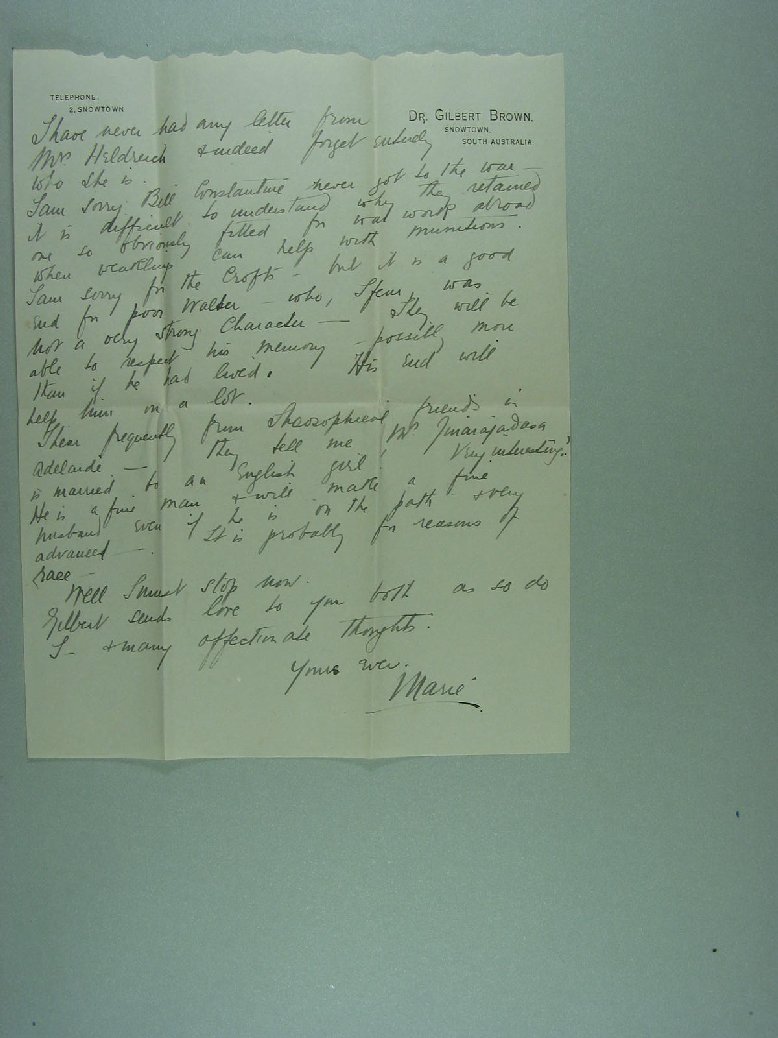 TELEPHONE.
2, SNOWTOWN
DR. GILBERT BROWN.
SNOWTOWN,
SOUTH AUSTRALIA
I have never had any letter from
Mrs Heldreich & indeed forget entirely
who she is.
I am sorry Bill Constantine never got to the war —
it is difficult to understand why they retained
one so obviously fitted for war work abroad
when weaklings can help with munitions.
I am sorry for the Crofts - but it is a good
end for poor Walter - who, I fear, was
not a very strong character — They will be
able to respect his memory - possibly more
than if he had lived. His end will
help him on a lot.
I hear frequently from Theosophical friends in
Adelaide — they tell me Mr Jinarajadasa
is married to an English girl! Very interesting?
He is a fine man & will make a fine
husband even if he is on the path & very
advanced —. It is probably for reasons of
race —
Well I must stop now.
Gilbert sends love to you both as so do
I - & many affectionate thoughts.
Yours ever.
Marie